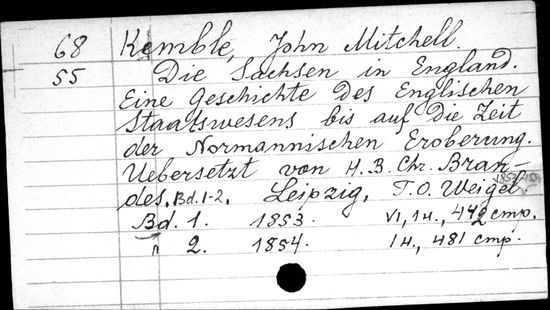 68 Kemble, John Mitchell.
55 Die Sachsen in England.
Eine Geschichte des Englischen
Staatswesens bis auf die Zeit
der Normannischen Eroberung.
Uebersetzt von H. B. Chr. Bran-
des. Bd. 1-2. Leipzig, T. O. Weigel.
Bd. 1. 1853. VI, 1 н., 442 стр.
" 2. 1854. 1 н., 481 стр.